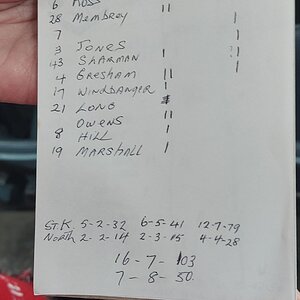 6 ROSS II
28 Membrey I
7 I
3 JONES II
43 SHARMAN I I
4 GRESHAM II
17 WINDBANGER I
21 LONG
OWENS II
8 HILL I
19 MARSHALL I
ST.K. 5-2-32 6-5-41 12-7-79
North 2-2-14 2-3-15 4-4-28
16-7-103
7-8-50